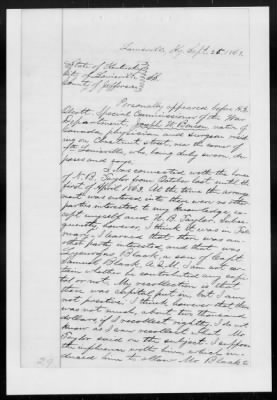 Louisville, Ky. Sept. 25th 1863.
State of Kentucky
City of Louisville } SS.
County of Jefferson
Personally appeared before H. S.
Olcott, Special Commissioner of the War
Department, native of
Canada, physician and surgeon, resid-
ing on Chestnut street, near the corner of
5th, Louisville, who being duly sworn, de-
poses and says.
I was connected with the house
of N. B. Taylor from October last until the
first of April 1863. At the time the arrange-
ment was entered into there were no other
parties interested to my knowledge, ex-
cept myself and N. B. Taylor, subse-
quently, however, I think it was in Jan-
uary, I learned that there was an-
other party interested, and that was
Black, a son of Capt
Samuel Black A.Q.M. I am not cer-
tain whether he contributed any capi-
tal or not. My recollection is that
there was capital put in, but I am
not positive. I think however that there
was not much, about two thousand
dollars if I recollect rightly. I do not
know as I can recollect what Mr
Taylor said on the subject. I suppose
the influence with him, which in-
duced him to allow Mr Black a
29